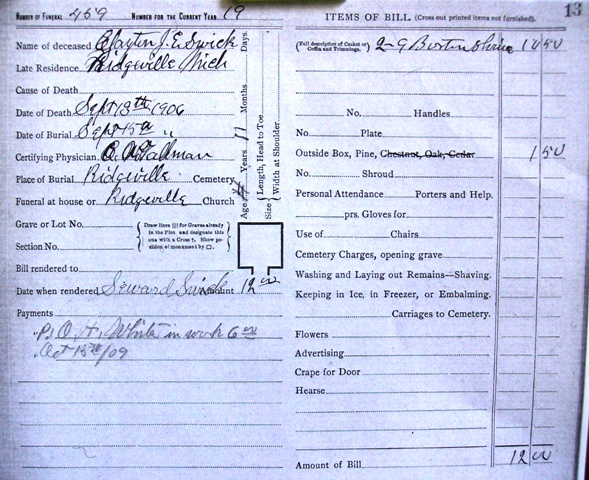 NUMBER OF FUNERAL 459 NUMBER FOR THE CURRENT YEAR 19
Name of deceased Clayton J. E. Swick
Late Residence Ridgeville Mich
Cause of Death
Date of Death Sept 13th 1906
Date of Burial Sept 15th "
Certifying Physician
Place of Burial Ridgeville Cemetery
Funeral at house or Ridgeville Church
Grave or Lot No.
Section No.
{ Draw lines ||| for Graves already
in the Plot and designate this
one with a Cross †. Show po-
sition of monument by □. }
Age Years 11 Months Days
Size { Length, Head to Toe
Width at Shoulder
Bill rendered to
Date when rendered Seward Swick Amount 12 00
Payments
P. O. H. White in work 6 00
Oct 15th/09
ITEMS OF BILL (Cross out printed items not furnished).
13
(Full description of Casket or
Coffin and Trimmings. 2-9 10 50
No. Handles
No. Plate
Outside Box, Pine, Chestnut, Oak, Cedar 1 50
No. Shroud
Personal Attendance Porters and Help.
prs. Gloves for
Use of Chairs.
Cemetery Charges, opening grave
Washing and Laying out Remains—Shaving.
Keeping in Ice, in Freezer, or Embalming.
Carriages to Cemetery.
Flowers
Advertising
Crape for Door
Hearse
Amount of Bill 12 00